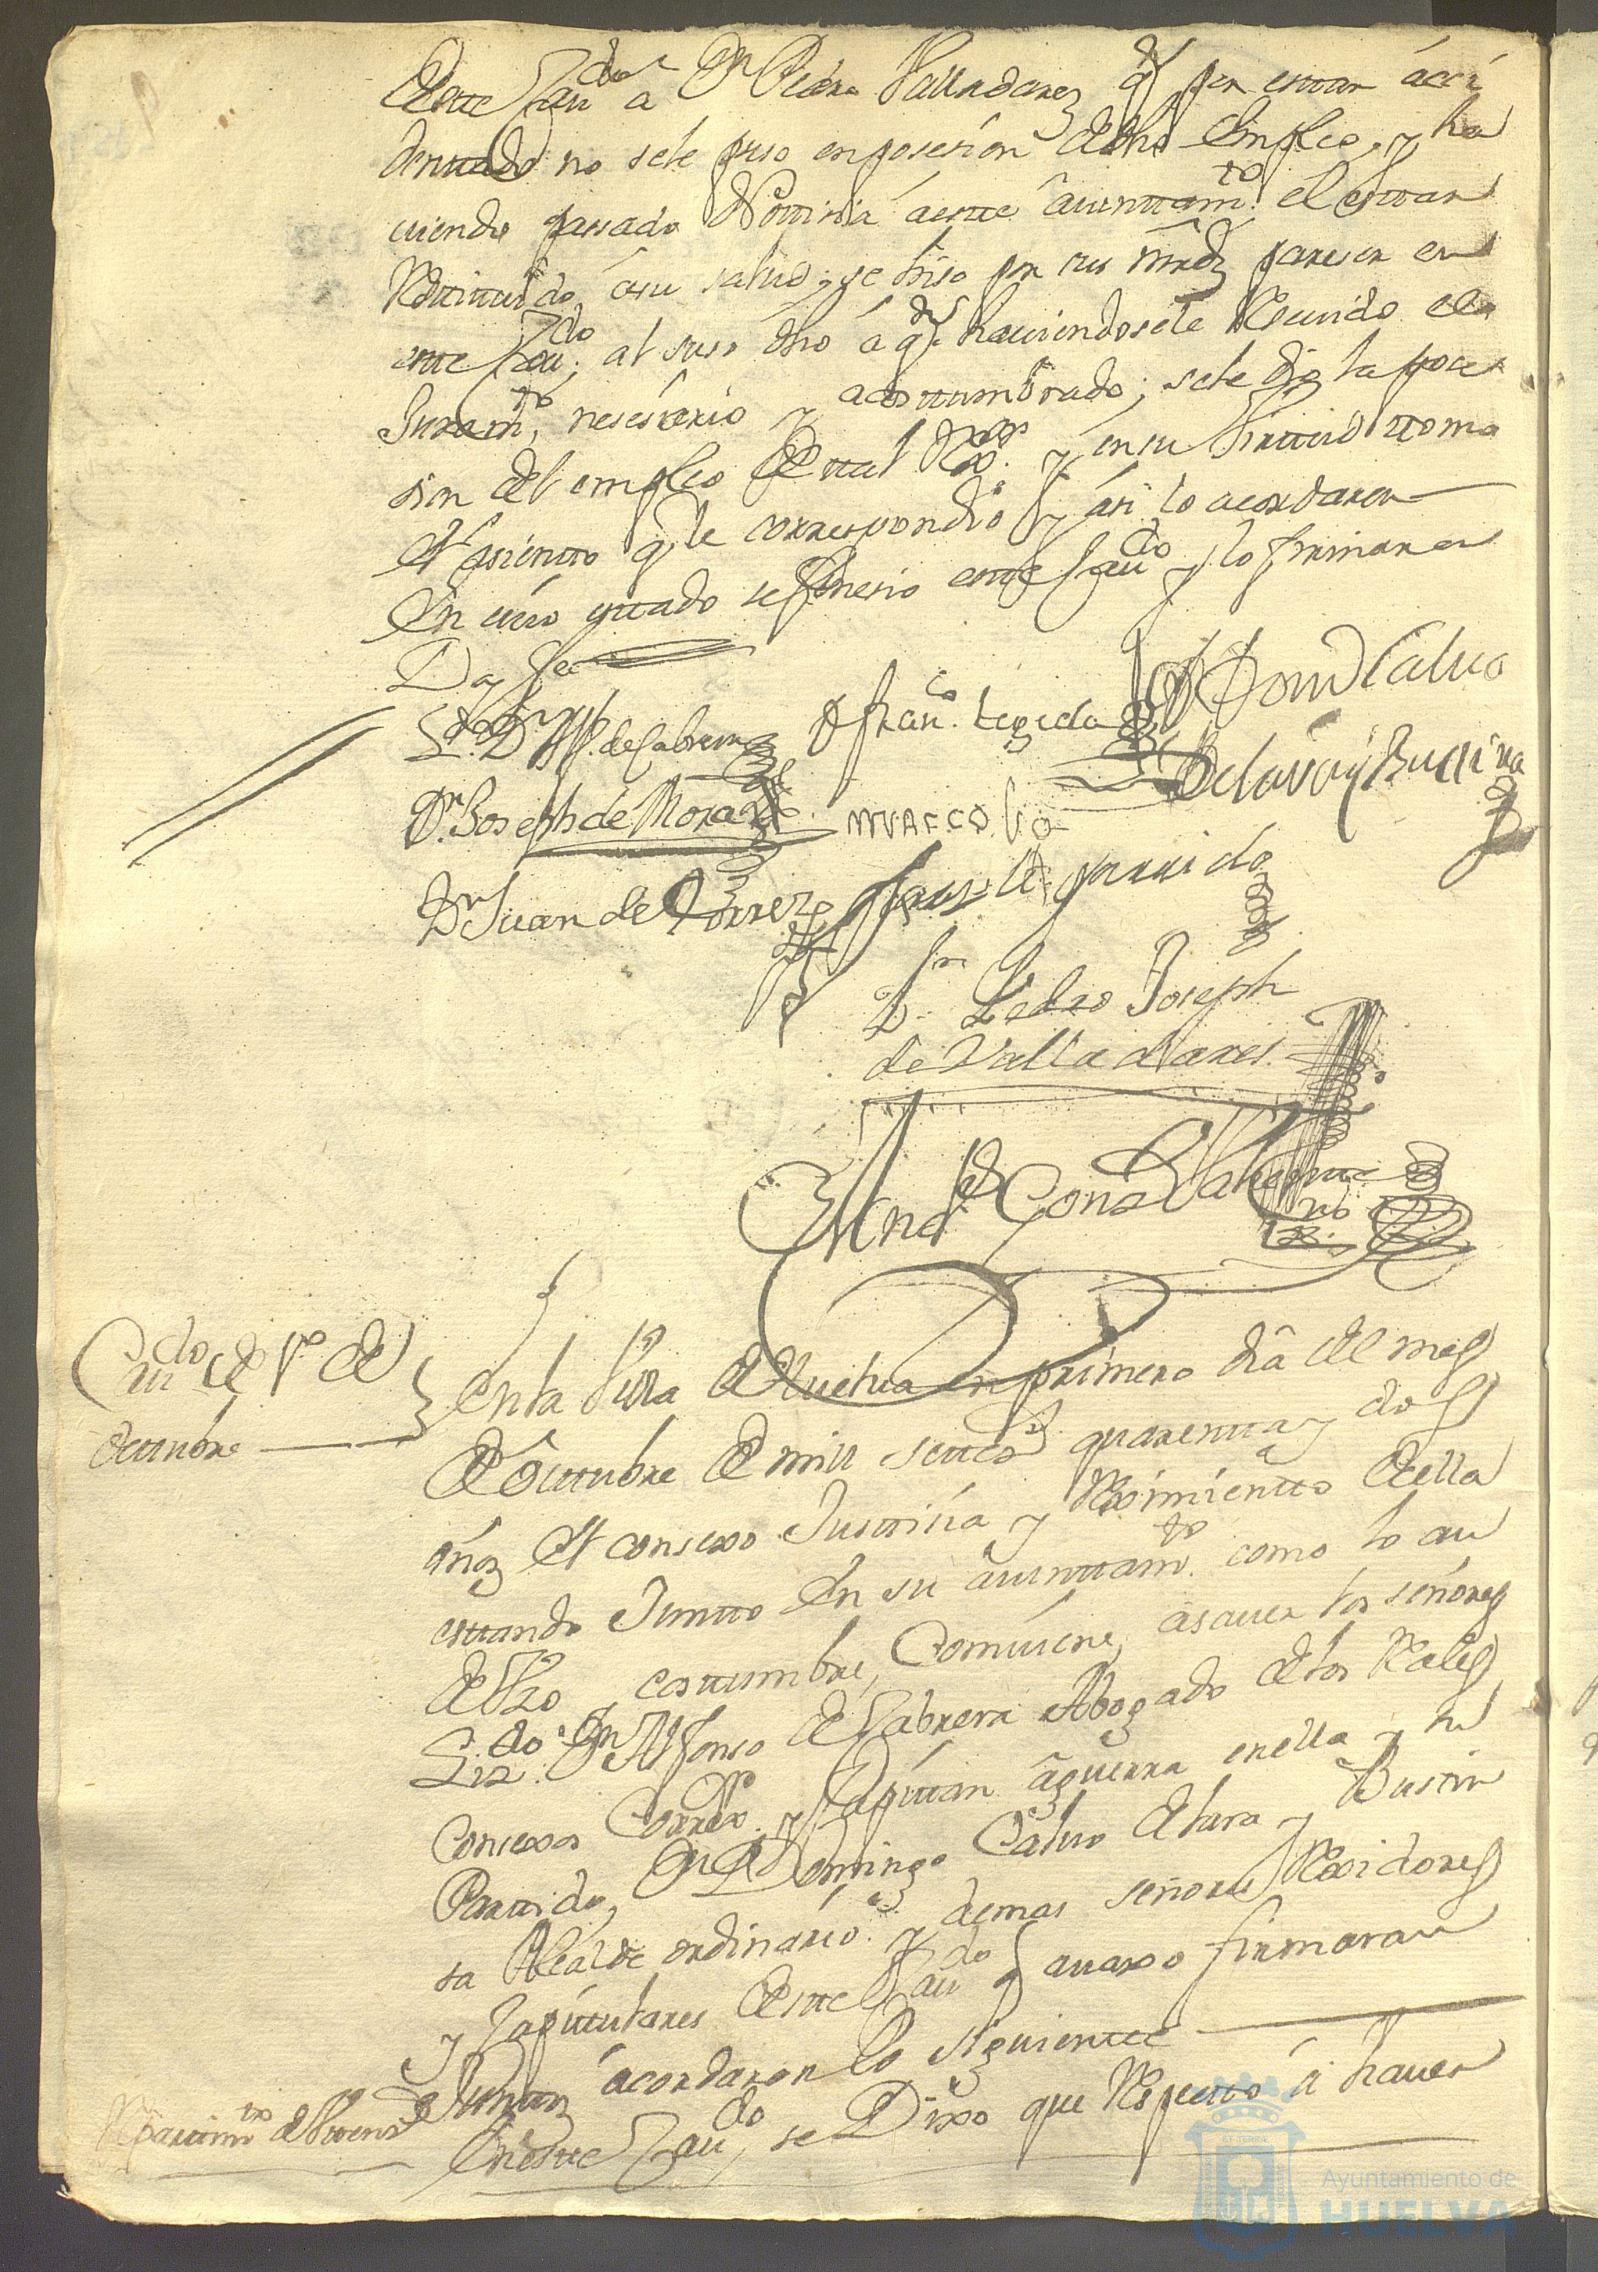 deste Cavdo a Dn Pedro Valladarez q por estar acci
dentado no sele puso en posesion de dho Empleo, y ha
viendo passado Notisia a este aiunttamto el estar
Restituido, a su salud, se hiso por sus mrdz pareser en
este Cavdo al suso dho á qn haviendosele Resevido el
Juramto nesesario y acostumbrado; sele dio la poce
sion del empleo de tal Rexor y en su virtud tomo
el asiento q le correspondio y asi lo acordaron
En cuio estado sefenesio este Cavdo y lo firmaron
Doy fee
Ldo Dn Alf. de Cabrera
D Franco tegeda
Dn Domo Calvo
de Lara y Bustina
Dn Joseph de Mora
marco
Dn Juan de Torrez
garrido
Dn Pedro Joseph
de Valladares
Andr de Cons
Cavdo de 1o de
Octubre
En la Villa de Huelva en primero dia del mes
de Octubre de mill settcos quarenta y dos
años el consexo Justisia y Reximiento della
estando Juntto en su aiunttamto como lo an
de Uso costumbre, Comviene, asaver los señores
Lizdo Dn Alfonso de Cabrera Abogado delos Reales
Consexos Correxor y Capitan aguerra enella y su
Partido, Dn Domingo Calvo de Lara y Bustin
sa Alcalde ordinario y demas señores Rexidores
y Capitulares deste Cavdo q avaxo firmaran
Juntos acordaron lo siguiente
Repartimto de
En este Cavdo se Dixo que Respecto á haver
Ayuntamiento de
HUELVA